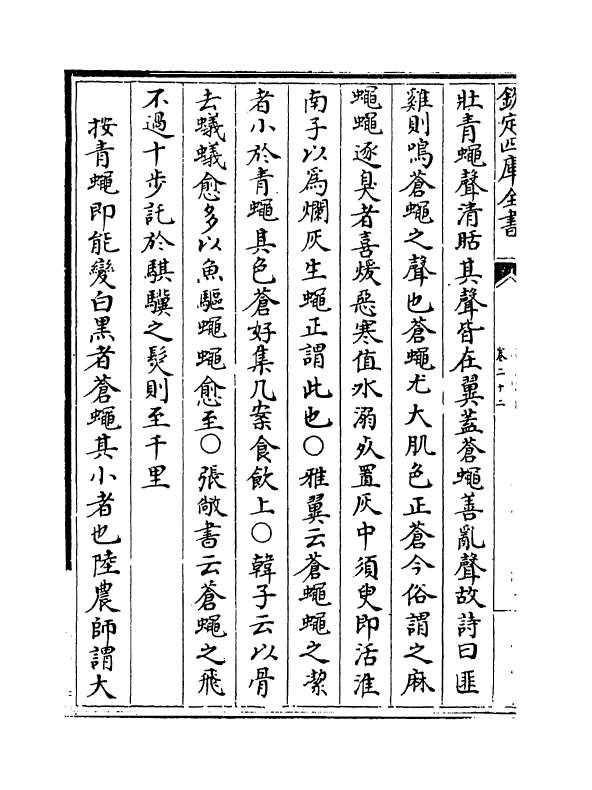 欽定四庫全書
卷二十二
壯青蠅聲清聒其聲皆在翼蓋蒼蠅善亂聲故詩曰匪
雞則鳴蒼蠅之聲也蒼蠅尤大肌色正蒼今俗謂之麻
蠅蠅逐臭者喜煖惡寒值水溺𭧂置灰中須臾即活淮
南子以為爛灰生蠅正謂此也○雅翼云蒼蠅蠅之潔
者小於青蠅其色蒼好集几案食飲上○韓子云以骨
去蟻蟻愈多以魚驅蠅蠅愈至○張敞書云蒼蠅之飛
不過十步託於騏驥之髮則至千里
按青蠅即能變白黑者蒼蠅其小者也陸農師謂大